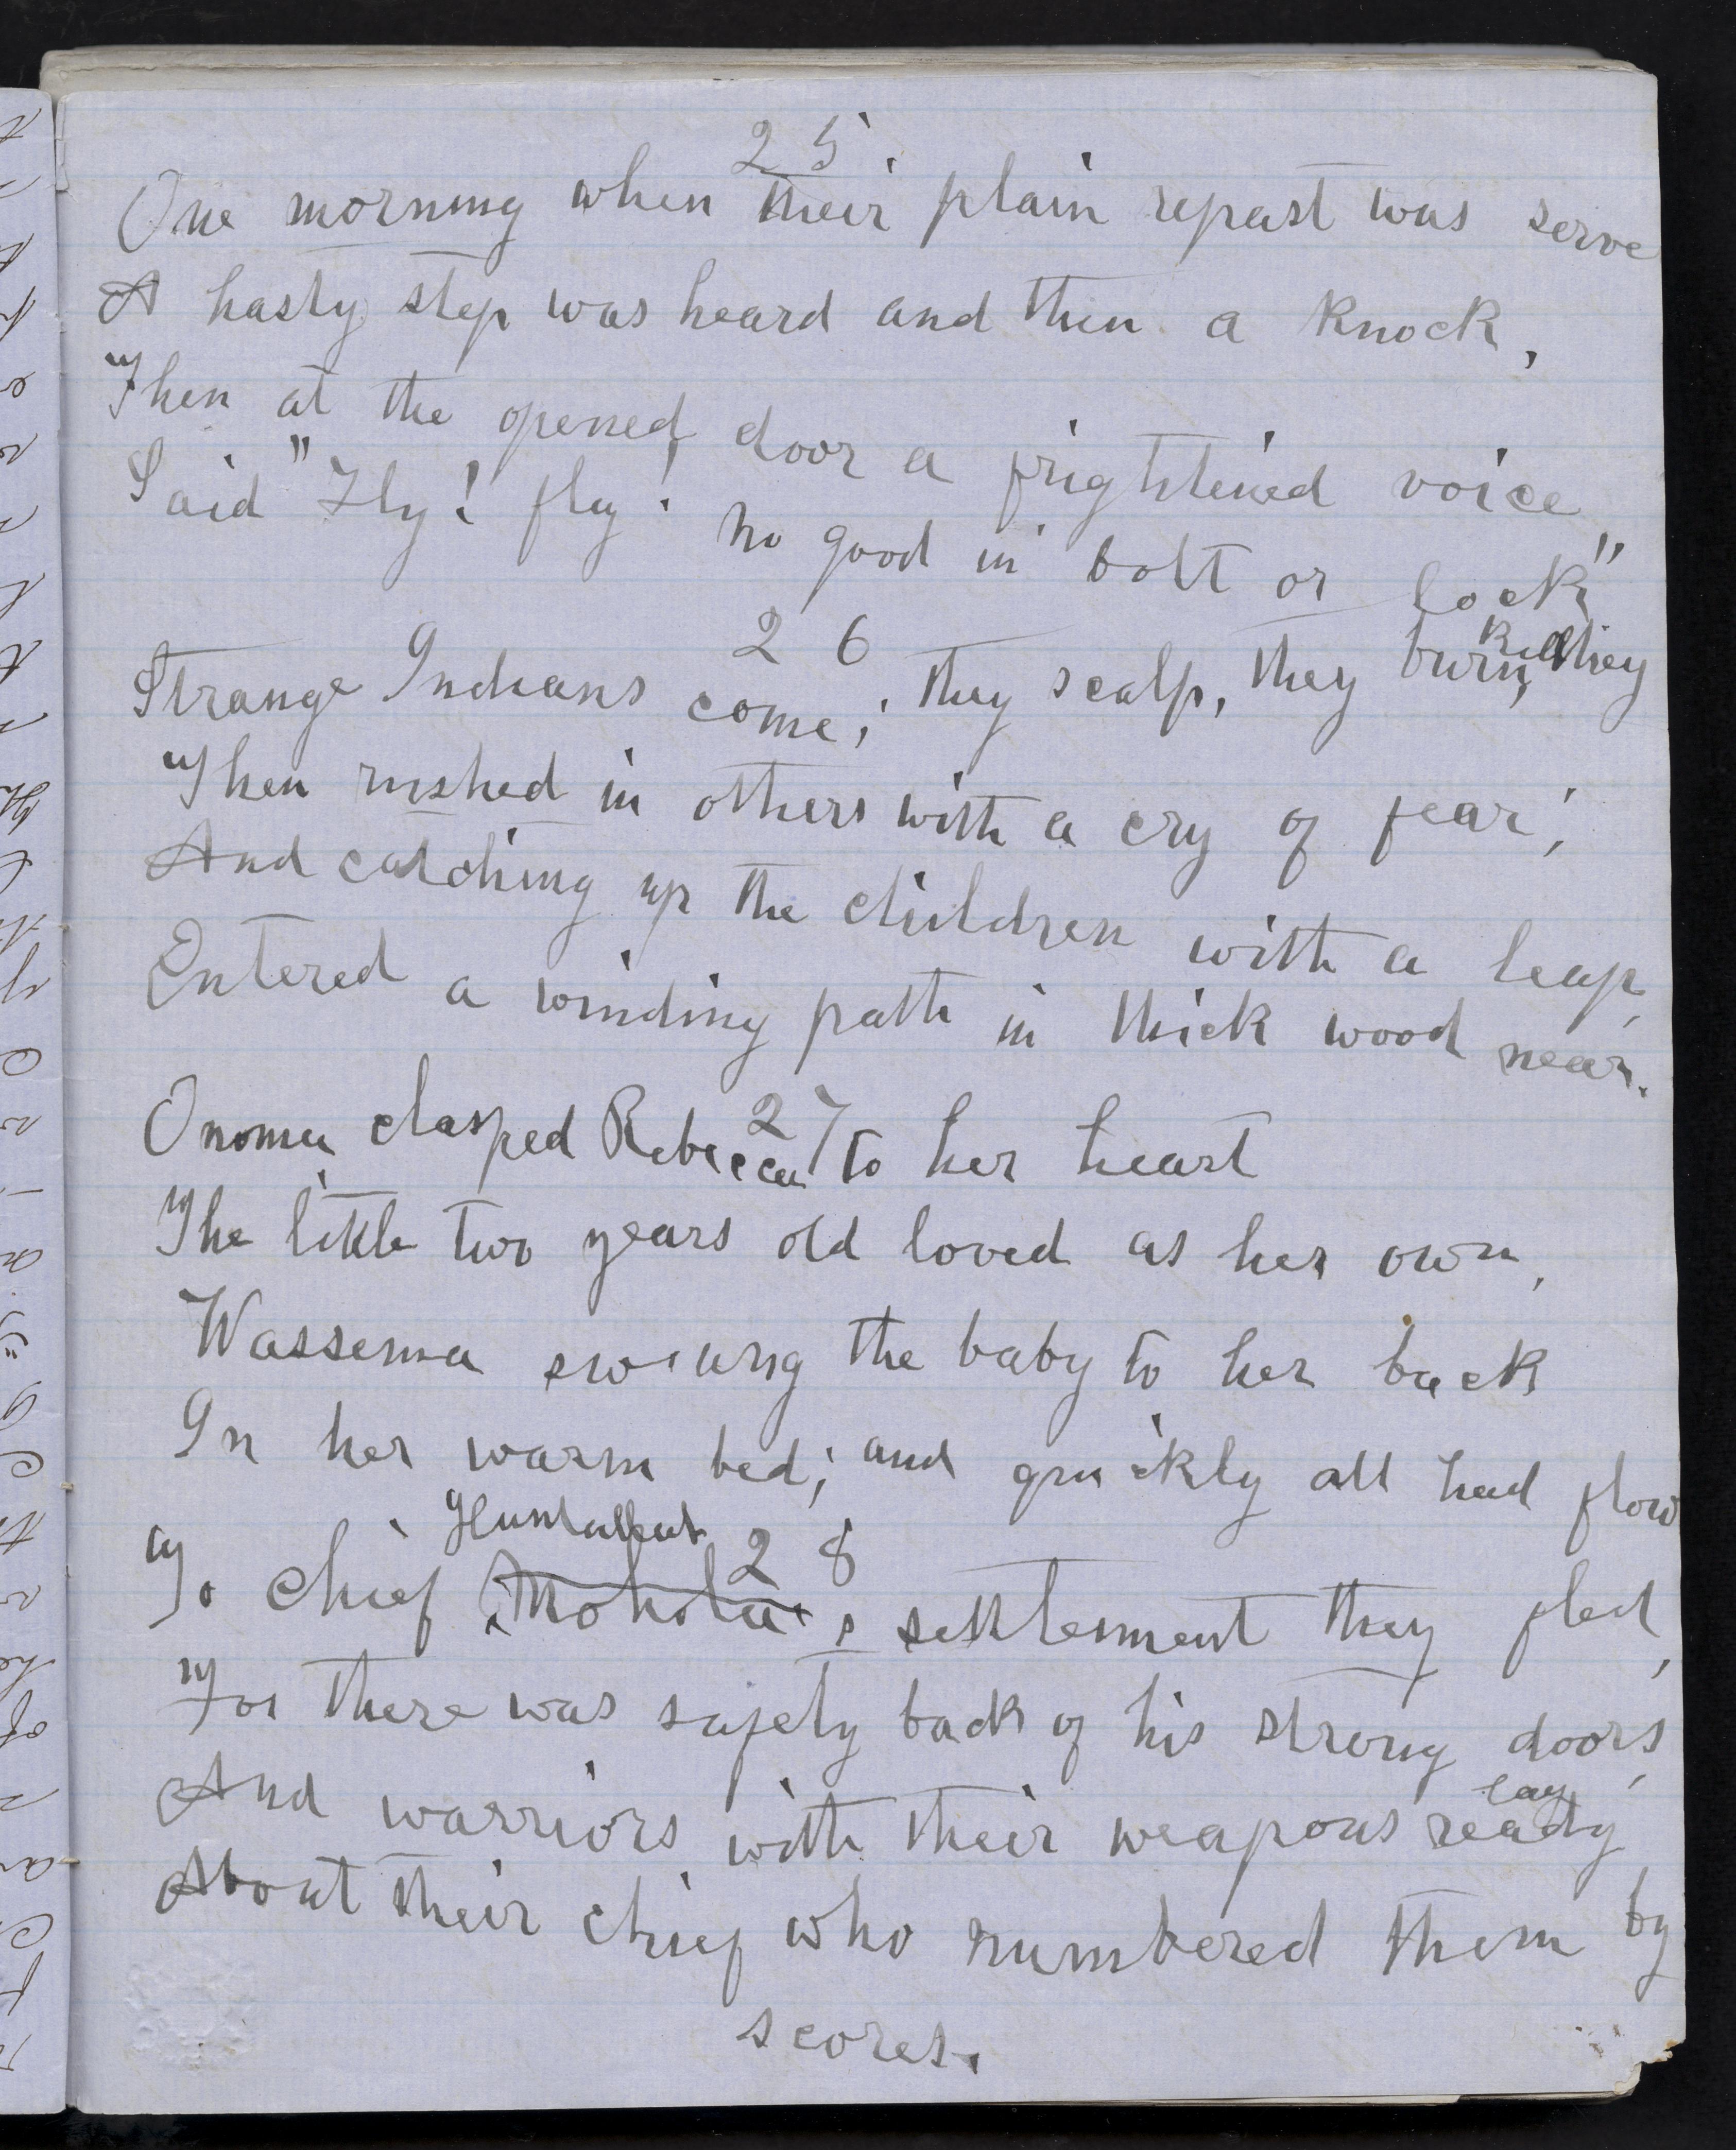 25
One morning when their plain repast was serve
A hasty step was heard and then a knock,
Then at the opened door a frightened voice
Said "Fly! fly! no good in bolt or lock"
26
Strange Indians come; they scalp, they burn, they kill
Then rushed in others with a cry of fear;
And catching up the children with a leap,
Entered a winding path in thick wood near.
27
Onoma clasped Rebecca to her heart
The little two years old loved as her own,
Wassema swung the baby to her back
In her warm bed; and quickly all had flow
28
To chief Mohola's settlement they fled,
For there was safety back of his strong doors,
And warriors with their weapons ready lay
About their chief who numbered them by
scores.